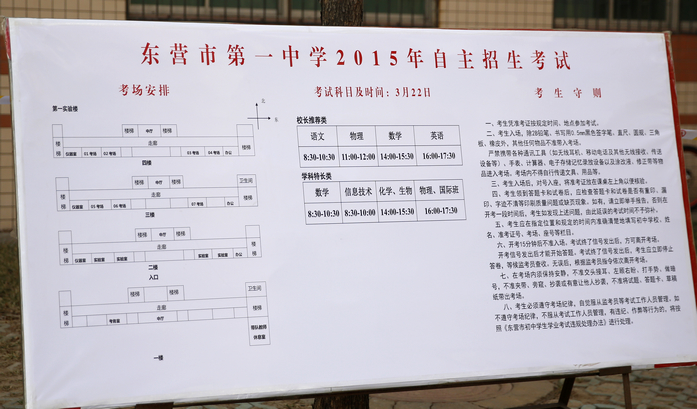 东营市第一中学2015年自主招生考试
考场安排
第一实验楼
北
东
楼梯 中厅 楼梯
走廊
楼梯 仪器室 01考场 02考场 03考场 04考场 办公 楼梯
四楼
楼梯 中厅 楼梯 卫生间
走廊
楼梯 仪器室 05考场 06考场 07考场 办公 楼梯
三楼
楼梯 中厅 楼梯
走廊
楼梯 仪器室 实验室 实验室 实验室 实验室 办公 楼梯
二楼
入口
楼梯 中厅 楼梯 卫生间
走廊
楼梯 考务室 实验室 实验室 楼梯
领队教师休息室
一楼
考试科目及时间：3月22日
校长推荐类
语文 物理 数学 英语
8:30-10:30 11:00-12:00 14:00-15:30 16:00-17:30
学科特长类
数学 信息技术 化学、生物 物理、国际班
8:30-10:30 8:30-10:00 14:00-15:30 16:00-17:30
考生守则
一、考生凭准考证按规定时间、地点参加考试。
二、考生入场，除2B铅笔、书写用0.5mm黑色签字笔、直尺、圆规、三角
板、橡皮外，其他任何物品不准带入考场。
严禁携带各种通讯工具（如无线耳机、移动电话及其他无线接收、传送
设备等）、手表、计算器、电子存储记忆录放设备以及涂改液、修正带等物
品进入考场。考场内不得自行传递文具、用品等。
三、考生入场后，对号入座，将准考证放在课桌左上角以便核验。
四、考生领到答题卡和试卷后，应检查答题卡和试卷是否有重印、漏
印、字迹不清等印刷质量问题或缺页现象，如有，请立即举手报告，否则在
开考一段时间后，考生如发现上述问题，由此延误的考试时间不予弥补。
五、考生应在指定位置和规定的时间内准确清楚地填写初中学校、姓
名、准考证号、考场、座号等栏目。
六、开考15分钟后不准入场。考试终了信号发出后，方可离开考场。
开考信号发出后才能开始答题，考试终了信号发出后，考生应立即停止
答卷，等候监考员查收，无误后，根据监考员指令依次离开考场。
七、在考场内须保持安静，不准交头接耳、左顾右盼、打手势、做暗
号，不准夹带、旁窥、抄袭或有意让他人抄袭，不准将试题、答题卡、草稿
纸带出考场。
八、考生必须遵守考场纪律，自觉服从监考员等考试工作人员管理，如
不遵守考场纪律，不服从考试工作人员管理，有违纪、作弊等行为的，将按
照《东营市初中学生学业考试违规处理办法》进行处理。